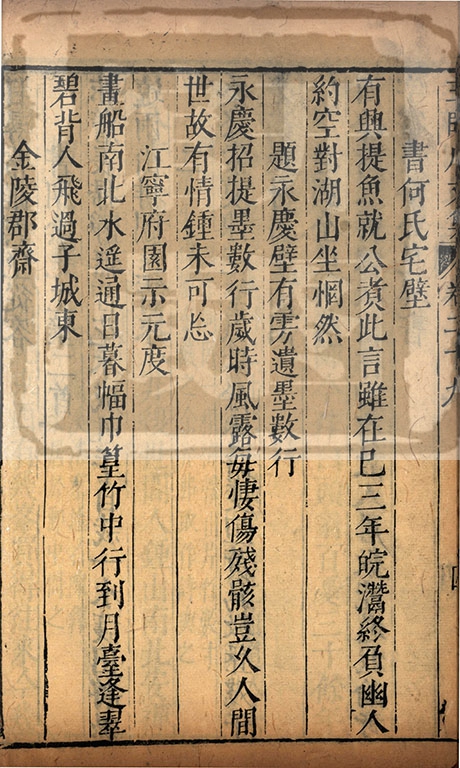 卷二十九
書何氏宅壁
有興提魚就公煑此言雖在巳三年皖灊終負幽人
約空對湖山坐惘然
題永慶壁有雱遺墨數行
永慶招提墨數行歲時風露每悽傷殘骸豈久人間
世故有情鍾未可忘
江寧府園示元度
畫船南北水遥通日暮幅巾篁竹中行到月臺逢翠
碧背人飛過子城東
金陵郡齋